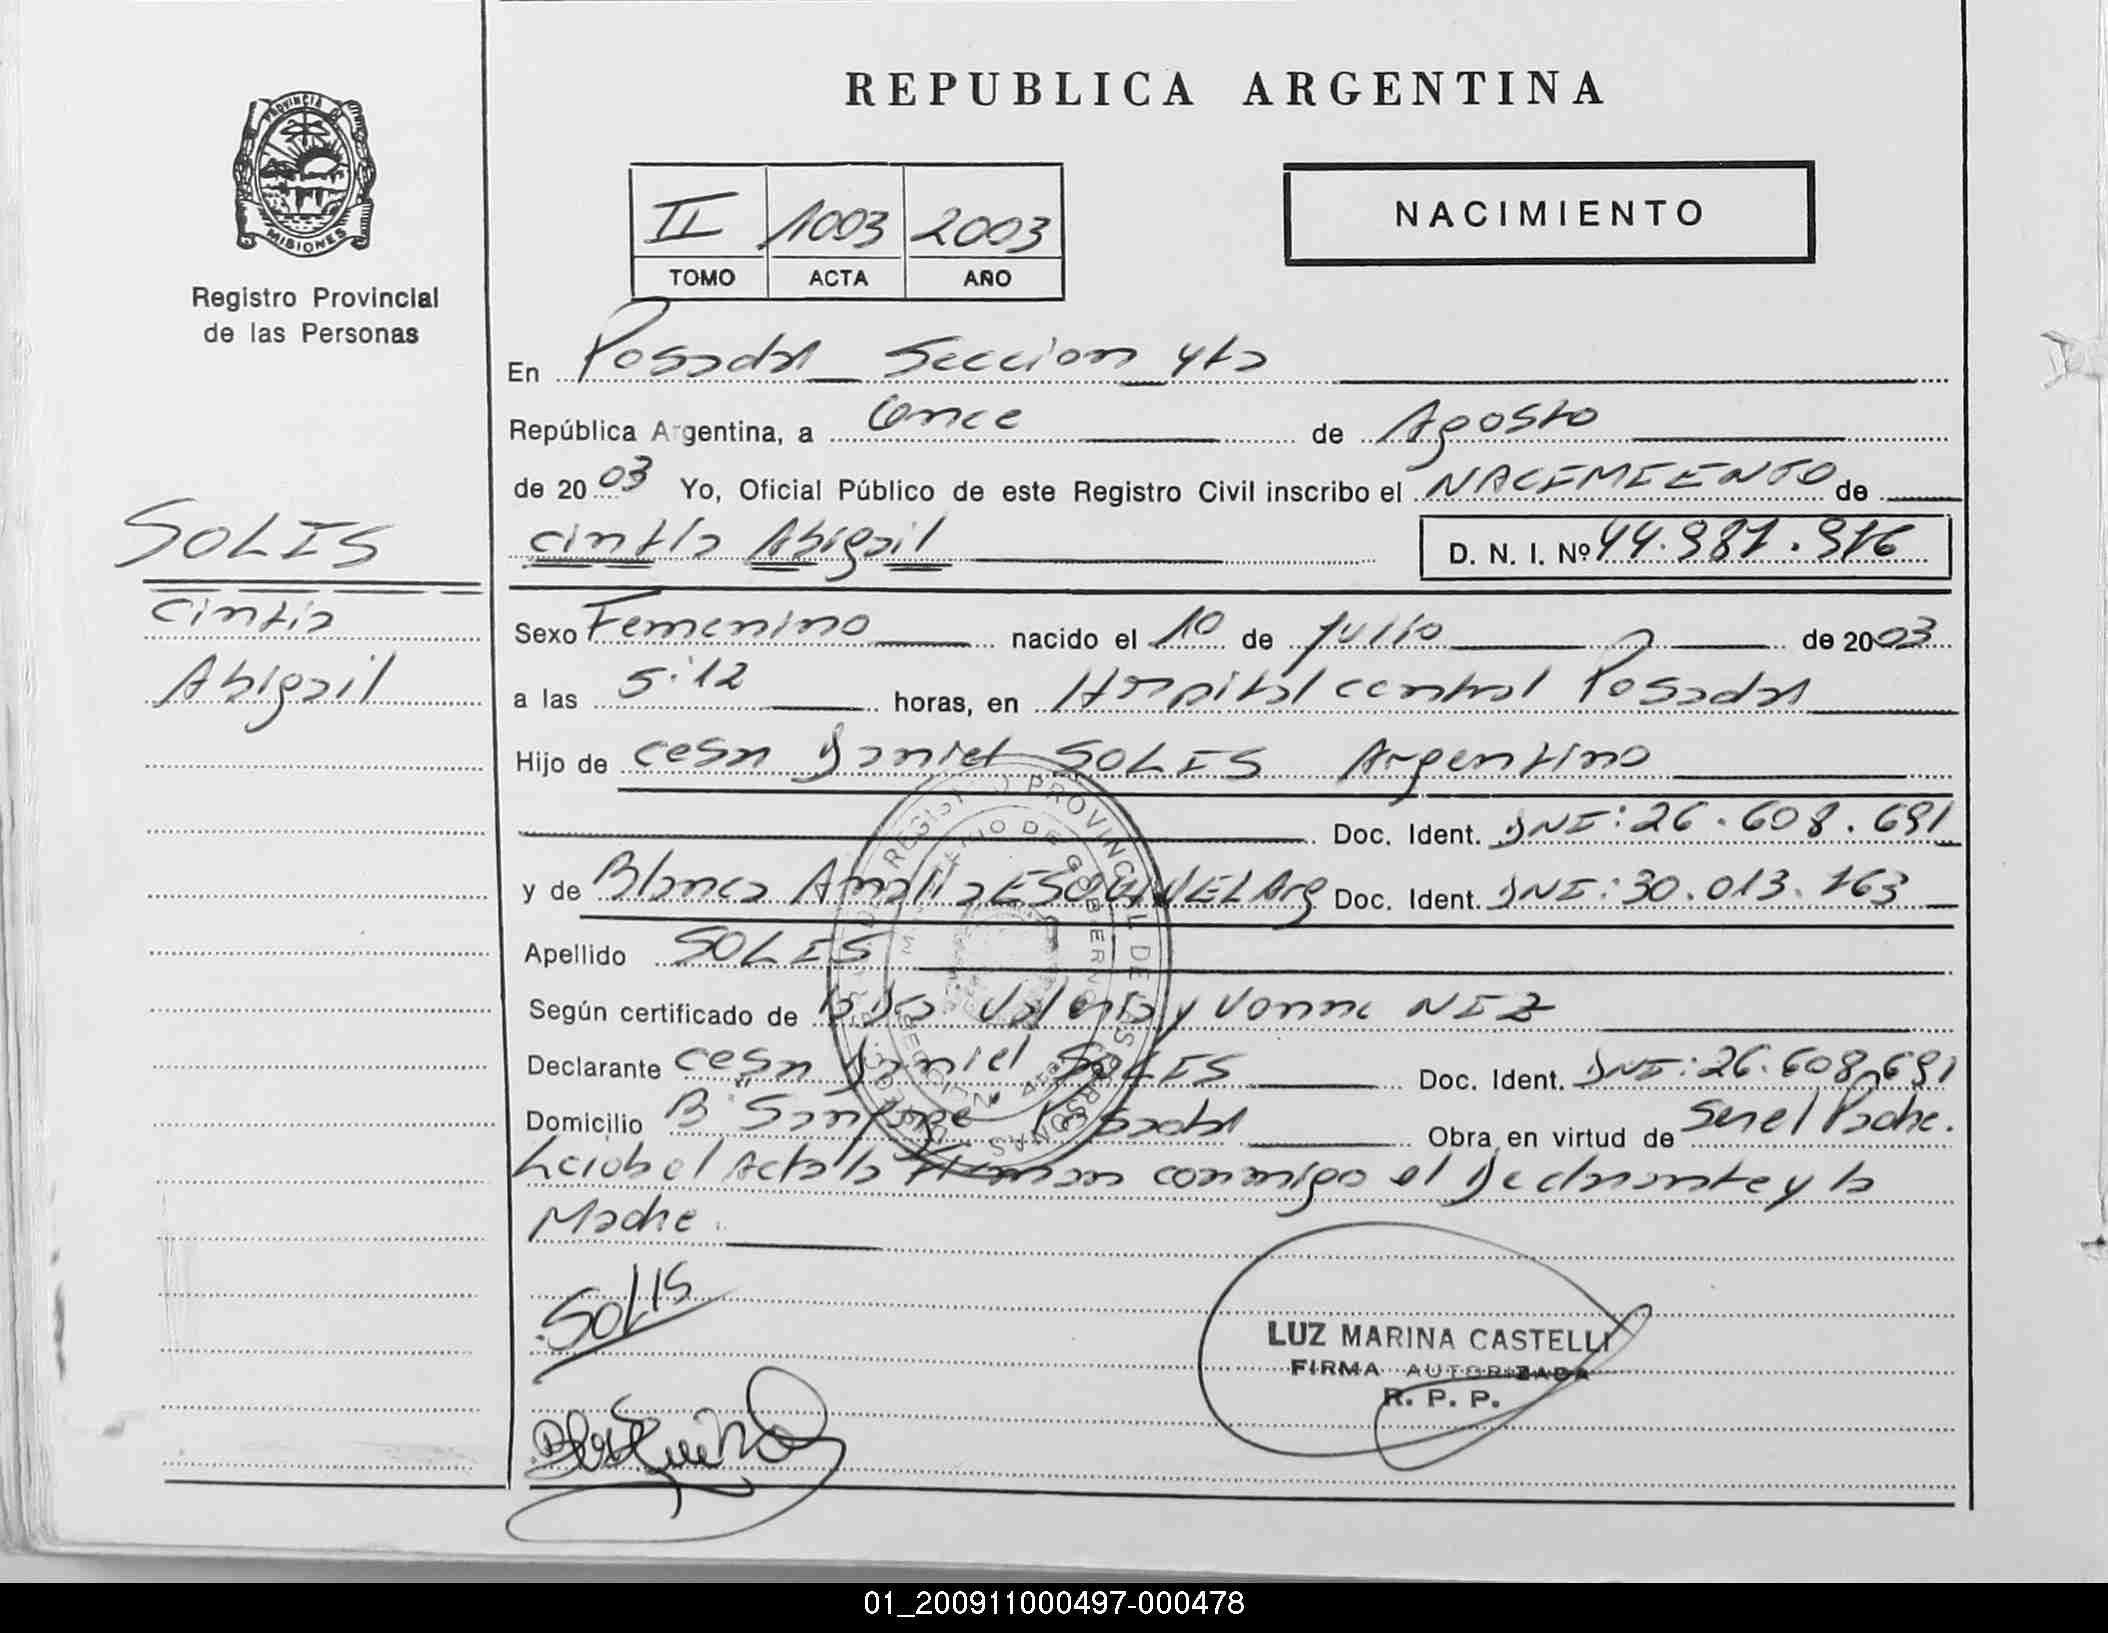 REPUBLICA ARGENTINA
PROVINCIA DE MISIONES
Registro Provincial
de las Personas
II 1003 2003
TOMO ACTA AÑO
NACIMIENTO
En Posadas Seccion 4ta
República Argentina, a Once de Agosto
de 2003 Yo, Oficial Público de este Registro Civil inscribo el NACIMIENTO de
Cintia Abigail D. N. I. Nº 44.987.976
SOLIS
Cintia
Abigail
Sexo Femenino nacido el 10 de Julio de 2003
a las 5:12 horas, en Hospital central Posadas
Hijo de Cesar Daniel SOLIS Argentino
Doc. Ident. DNI: 26.608.691
y de Blanca Amalia ESQUIVEL Arg Doc. Ident. DNI: 30.013.763
Apellido SOLIS
Según certificado de la Dra Valeria Yvonne NIZ
Declarante Cesar Daniel SOLIS Doc. Ident. DNI: 26.608.691
Domicilio Bº San Jorge Posadas Obra en virtud de Ser el Padre.
Leida el Acta la Firman conmigo el Declarante y la
Madre.
SOLIS
LUZ MARINA CASTELLI
FIRMA AUTORIZADA
R. P. P.
01_200911000497-000478